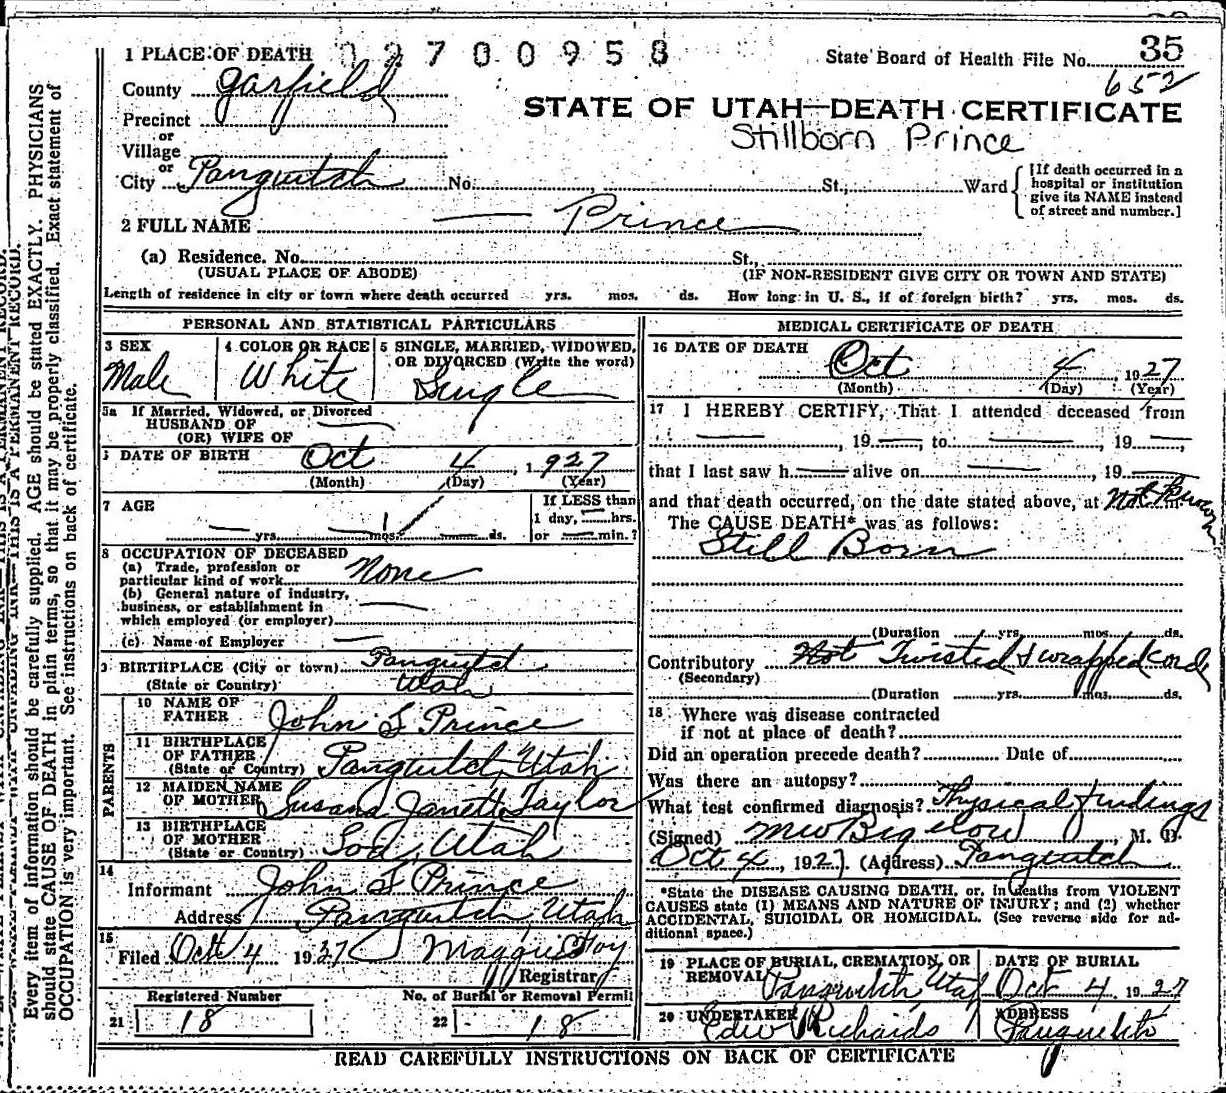 1 PLACE OF DEATH 02700958 State Board of Health File No. 35
652
County Garfield
STATE OF UTAH—DEATH CERTIFICATE
Precinct
Stillborn Prince
or
Village
or
City Panguitch No. , St., Ward
[If death occurred in a
hospital or institution
give its NAME instead
of street and number.]
2 FULL NAME — Prince
(a) Residence. No. St.,
(USUAL PLACE OF ABODE) (IF NON-RESIDENT GIVE CITY OR TOWN AND STATE)
Length of residence in city or town where death occurred yrs. mos. ds. How long in U. S., if of foreign birth? yrs. mos. ds.
PERSONAL AND STATISTICAL PARTICULARS
3 SEX 4 COLOR OR RACE 5 SINGLE, MARRIED, WIDOWED,
OR DIVORCED (Write the word)
Male White Single
5a If Married, Widowed, or Divorced
HUSBAND OF
(OR) WIFE OF —
DATE OF BIRTH Oct 4, 1927
(Month) (Day) (Year)
7 AGE If LESS than
1 day, — hrs.
— yrs. — mos. — ds. or — min.?
8 OCCUPATION OF DECEASED
(a) Trade, profession or
particular kind of work None
(b) General nature of industry,
business, or establishment in
which employed (or employer) —
(c) Name of Employer —
9 BIRTHPLACE (City or town) Panguitch
(State or Country) Utah
PARENTS
10 NAME OF
FATHER John F Prince
11 BIRTHPLACE
OF FATHER
(State or Country) Panguitch, Utah
12 MAIDEN NAME
OF MOTHER Susana Janett Taylor
13 BIRTHPLACE
OF MOTHER
(State or Country) Utah
14
Informant John F Prince
Address Panguitch, Utah
15
Filed Oct 4 1927 Maggie Foy
Registrar
Registered Number No. of Burial or Removal Permit
21 18 22 18
MEDICAL CERTIFICATE OF DEATH
16 DATE OF DEATH
Oct 4, 1927
(Month) (Day) (Year)
17 I HEREBY CERTIFY, That I attended deceased from
—, 19—, to —, 19—
that I last saw h— alive on —, 19—
and that death occurred, on the date stated above, at Not Known m.
The CAUSE DEATH* was as follows:
Still Born
(Duration yrs. mos. ds.
Contributory Not Twisted & wrapped cord
(Secondary)
(Duration yrs. mos. ds.
18 Where was disease contracted
if not at place of death?
Did an operation precede death? Date of
Was there an autopsy?
What test confirmed diagnosis? Physical findings
(Signed) MW Bigelow, M. D.
Oct 4, 1927 (Address) Panguitch
*State the DISEASE CAUSING DEATH, or, in deaths from VIOLENT
CAUSES state (1) MEANS AND NATURE OF INJURY; and (2) whether
ACCIDENTAL, SUICIDAL OR HOMICIDAL. (See reverse side for ad-
ditional space.)
19 PLACE OF BURIAL, CREMATION, OR DATE OF BURIAL
REMOVAL Panguitch Utah Oct 4 1927
20 UNDERTAKER ADDRESS
Edw Richards Panguitch
READ CAREFULLY INSTRUCTIONS ON BACK OF CERTIFICATE
THIS IS A PERMANENT RECORD.
Every item of information should be carefully supplied. AGE should be stated EXACTLY. PHYSICIANS
should state CAUSE OF DEATH in plain terms, so that it may be properly classified. Exact statement of
OCCUPATION is very important. See instructions on back of certificate.